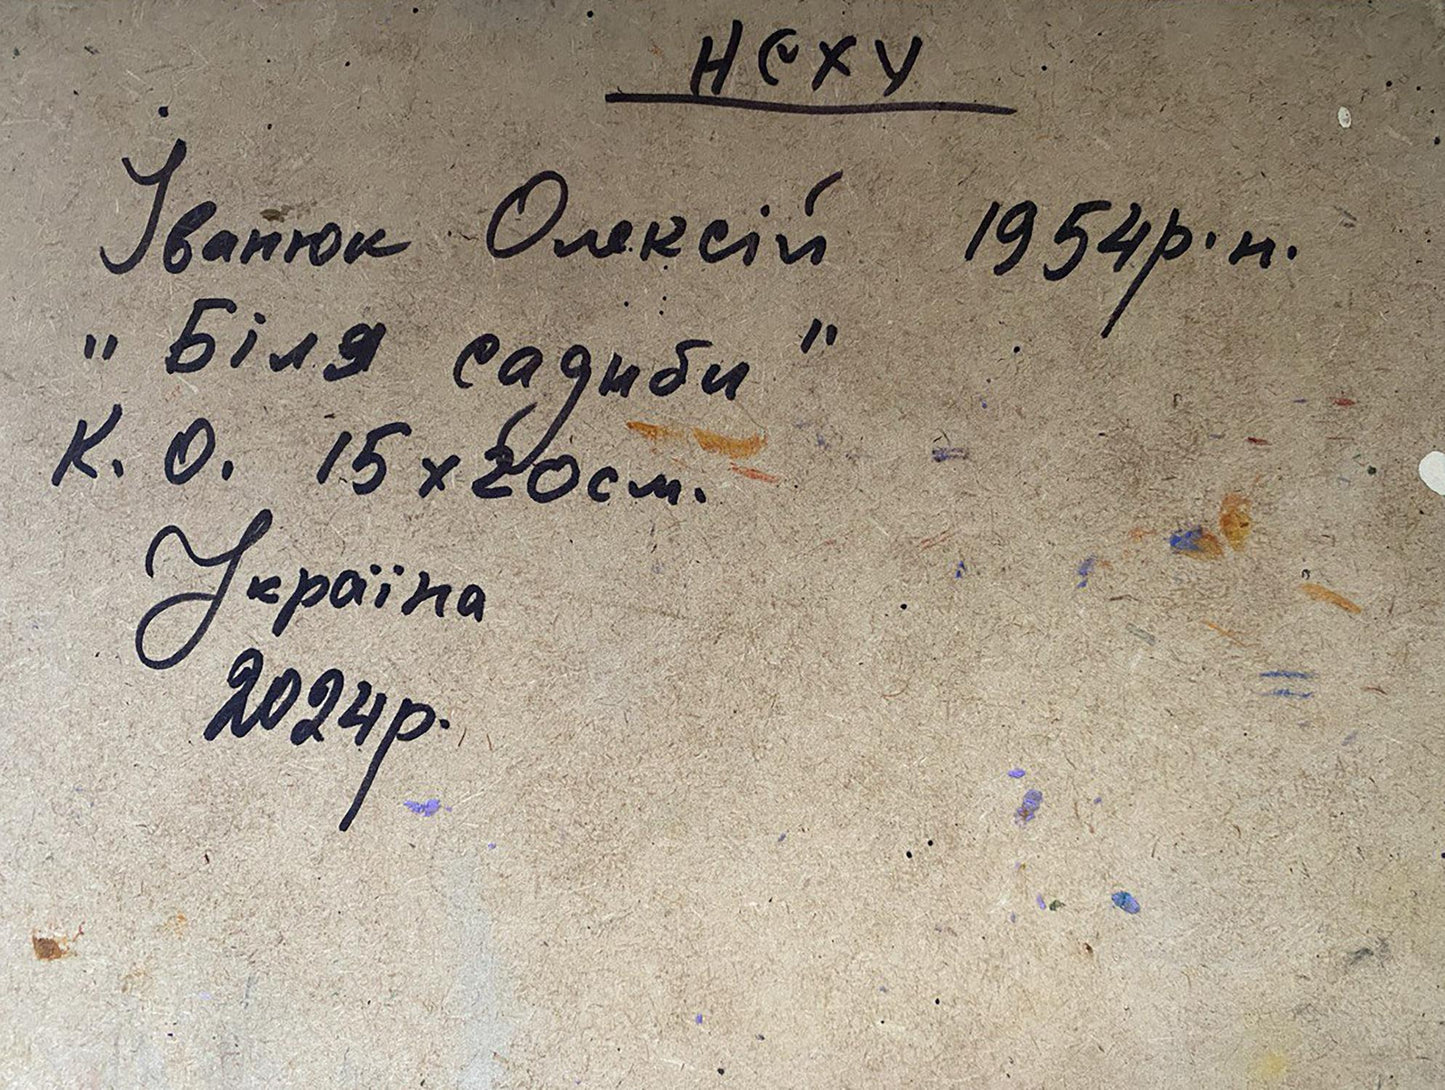 НСХУ
Іванюк Олексій 1954р.н.
"Біля садиби"
К. О. 15х20см.
Україна
2024р.